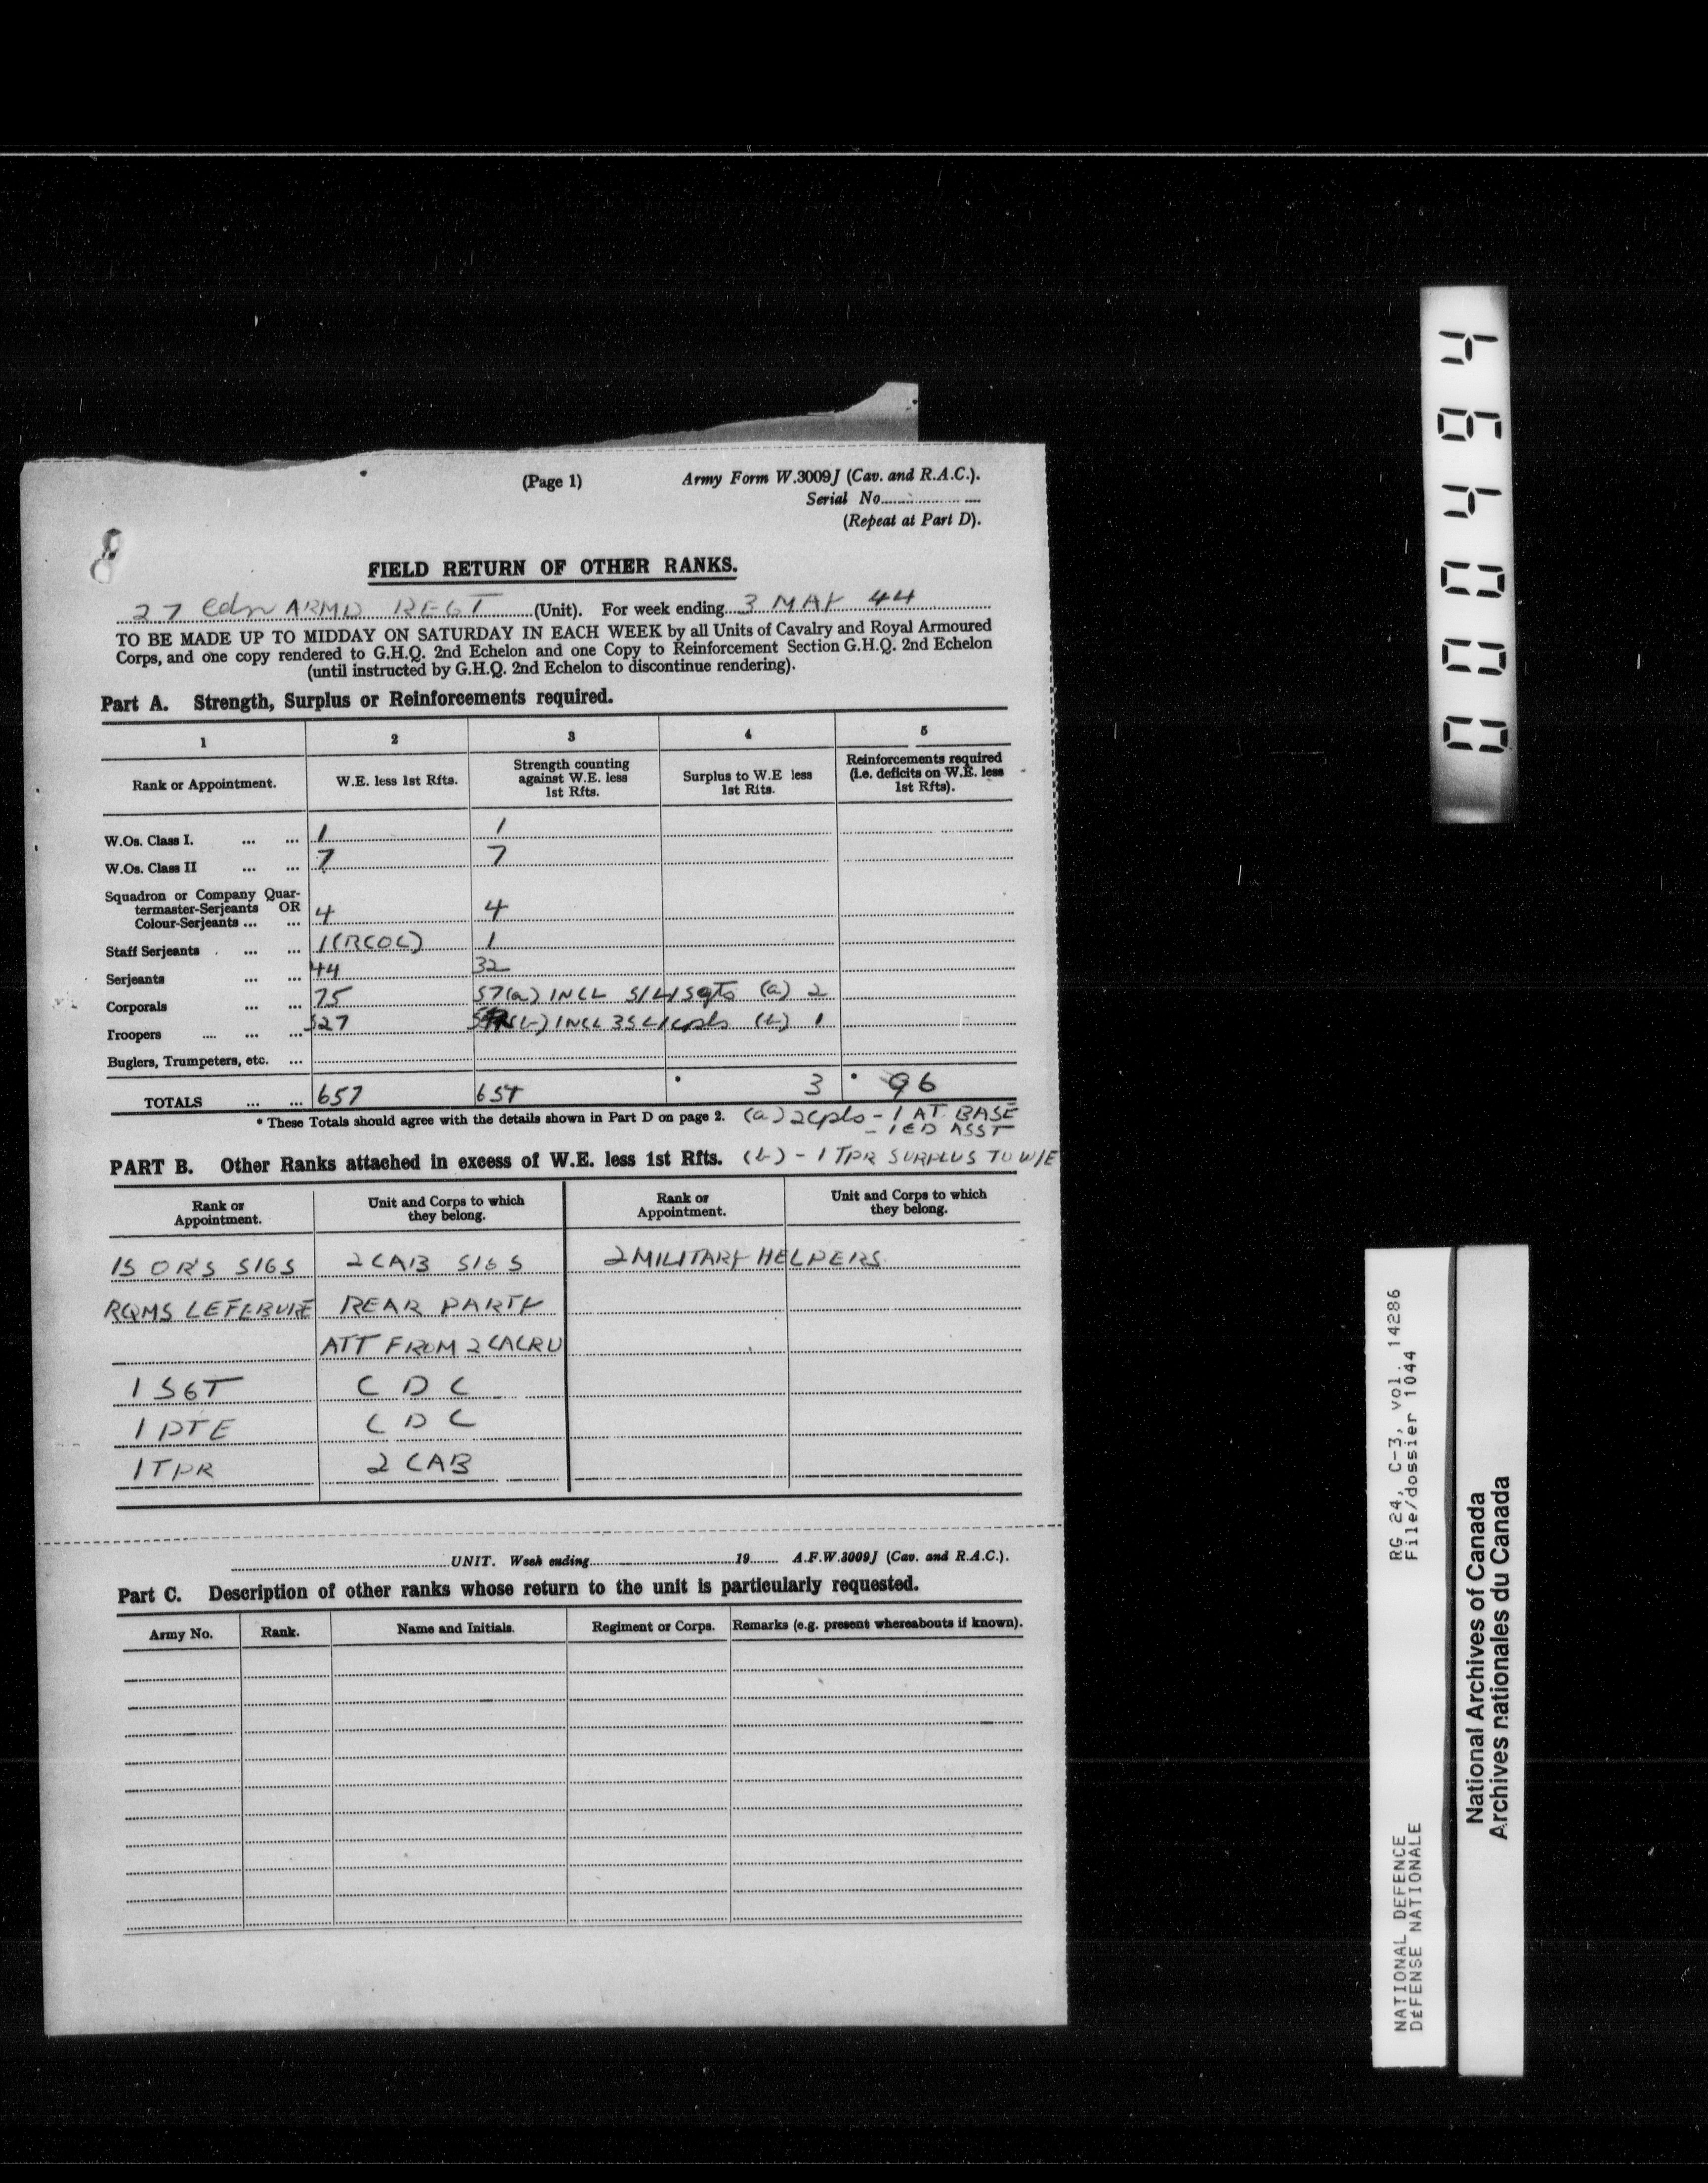 (Page 1)
Army Form W.3009J (Cav. and R.A.C.).
Serial No..........
(Repeat at Part D).
8
FIELD RETURN OF OTHER RANKS.
27 Cdn ARMD REGT (Unit). For week ending 3 MAY 44
TO BE MADE UP TO MIDDAY ON SATURDAY IN EACH WEEK by all Units of Cavalry and Royal Armoured
Corps, and one copy rendered to G.H.Q. 2nd Echelon and one Copy to Reinforcement Section G.H.Q. 2nd Echelon
(until instructed by G.H.Q. 2nd Echelon to discontinue rendering).
Part A. Strength, Surplus or Reinforcements required.
1 2 3 4 5
Rank or Appointment. W.E. less 1st Rfts. Strength counting against W.E. less 1st Rfts. Surplus to W.E less 1st Rfts. Reinforcements required (i.e. deficits on W.E. less 1st Rfts).
W.Os. Class I. ... ... 1 1
W.Os. Class II ... ... 7 7
Squadron or Company Quar-
termaster-Serjeants OR
Colour-Serjeants ... ... 4 4
Staff Serjeants ... ... 1 (RCOC) 1
Serjeants ... ... 44 32
Corporals ... ... 75 57 (a) INCL 5/L/Sgts (a) 2
Troopers .... ... ... 527 (b) INCL 35 L/cpls (b) 1
Buglers, Trumpeters, etc. ...
TOTALS ... ... 657 • 3 • 96
• These Totals should agree with the details shown in Part D on page 2. (a) 2 cpls - 1 AT BASE
- 1 ED ASST
PART B. Other Ranks attached in excess of W.E. less 1st Rfts. (b) - 1 TPR SURPLUS TO W/E
Rank or Appointment. Unit and Corps to which they belong. Rank or Appointment. Unit and Corps to which they belong.
15 OR'S SIGS 2 CAB SIGS 2 MILITARY HELPERS
RQMS LEFEBVRE REAR PARTY
ATT FROM 2 CACRU
1 SGT C D C
1 PTE C D C
1 TPR 2 CAB
UNIT. Week ending 19 A.F.W.3009J (Cav. and R.A.C.).
Part C. Description of other ranks whose return to the unit is particularly requested.
Army No. Rank. Name and Initials. Regiment or Corps. Remarks (e.g. present whereabouts if known).
0000494
NATIONAL DEFENCE RG 24, C-3, vol. 14286
DÉFENSE NATIONALE File/dossier 1044
National Archives of Canada
Archives nationales du Canada